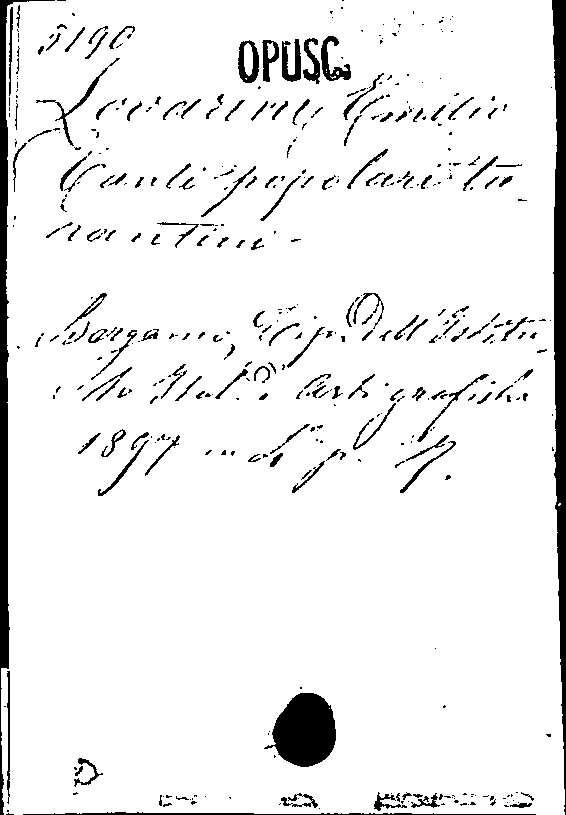 5190
OPUSC.
Lovarini Emilio
Canti popolari ta-
rantini -
Bergamo, Tip. dell'Istitu-
to Ital. d'Arti grafiche
1897 in 8° p.